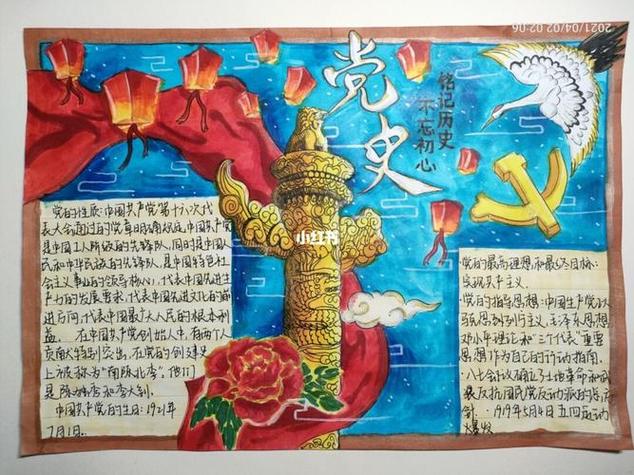 2021/04/02 02:06
党史
铭记历史
不忘初心
小红书
党的性质:中国共产党第十六次代
表大会通过的党章明确规定,中国共产党
是中国工人阶级的先锋队,同时是中国人
民和中华民族的先锋队,是中国特色社会
主义事业的领导核心,代表中国先进生
产力的发展要求,代表中国先进文化的前
进方向,代表中国最广大人民的根本利
益。在中国共产党创始人中,有两个人
贡献特别突出,在党的创建史
上被称为"南陈北李"。他们
是陈独秀和李大钊。
中国共产党的生日:1921年
7月1日。
·党的最高理想和最终目标:
实现共产主义。
·党的指导思想:中国共产党以
马克思列宁主义、毛泽东思想、
邓小平理论和"三个代表"重要
思想作为自己的行动指南。
·八七会议确立了土地革命和武
装反抗国民党反动派的总方
针。·1919年5月4日五四运动
爆发